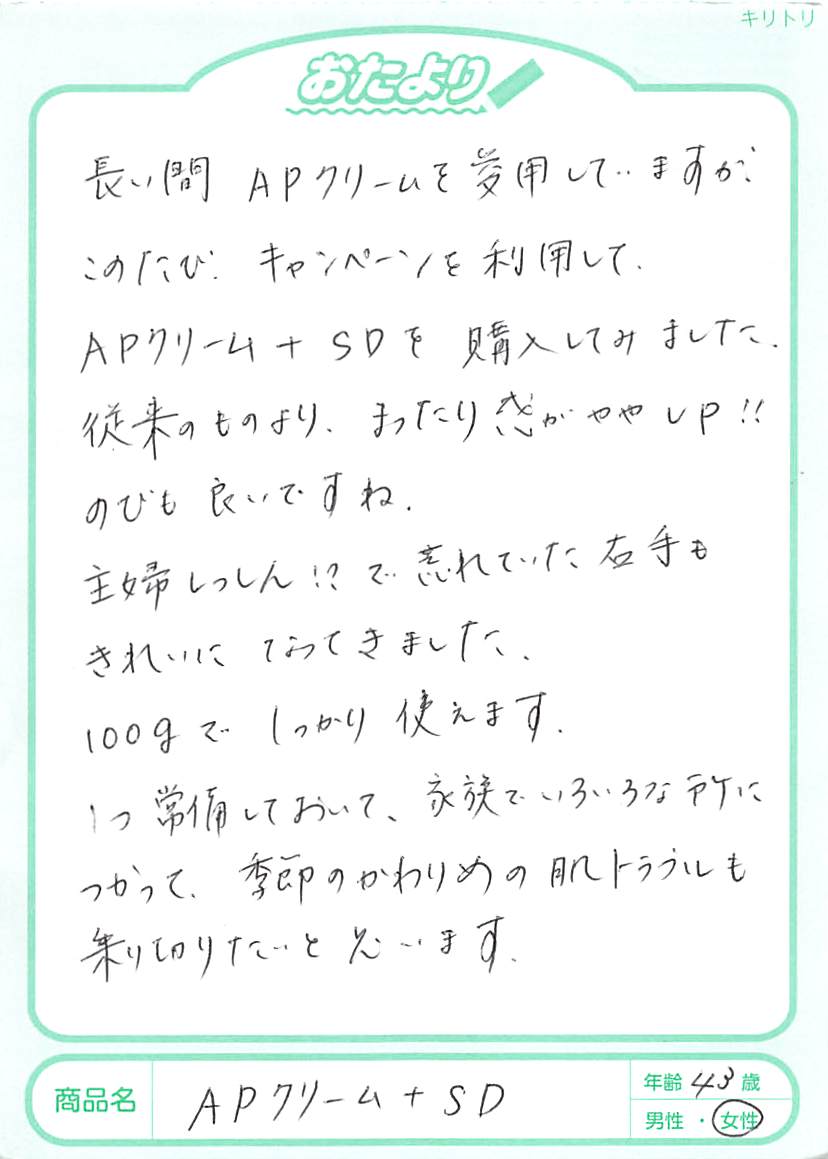 キリトリ
おたより
長い間 APクリームを愛用していますが、
このたび、キャンペーンを利用して、
APクリーム+SDを 購入してみました。
従来のものより、まったり感がややUP!!
のびも良いですね。
主婦しっしん!?で荒れていた右手も
きれいになってきました。
100gでしっかり使えます。
1つ常備しておいて、家族でいろいろな所に
つかって、季節のかわりめの肌トラブルも
乗り切りたいと思います。
商品名 APクリーム+SD
年齢 43 歳
男性・女性